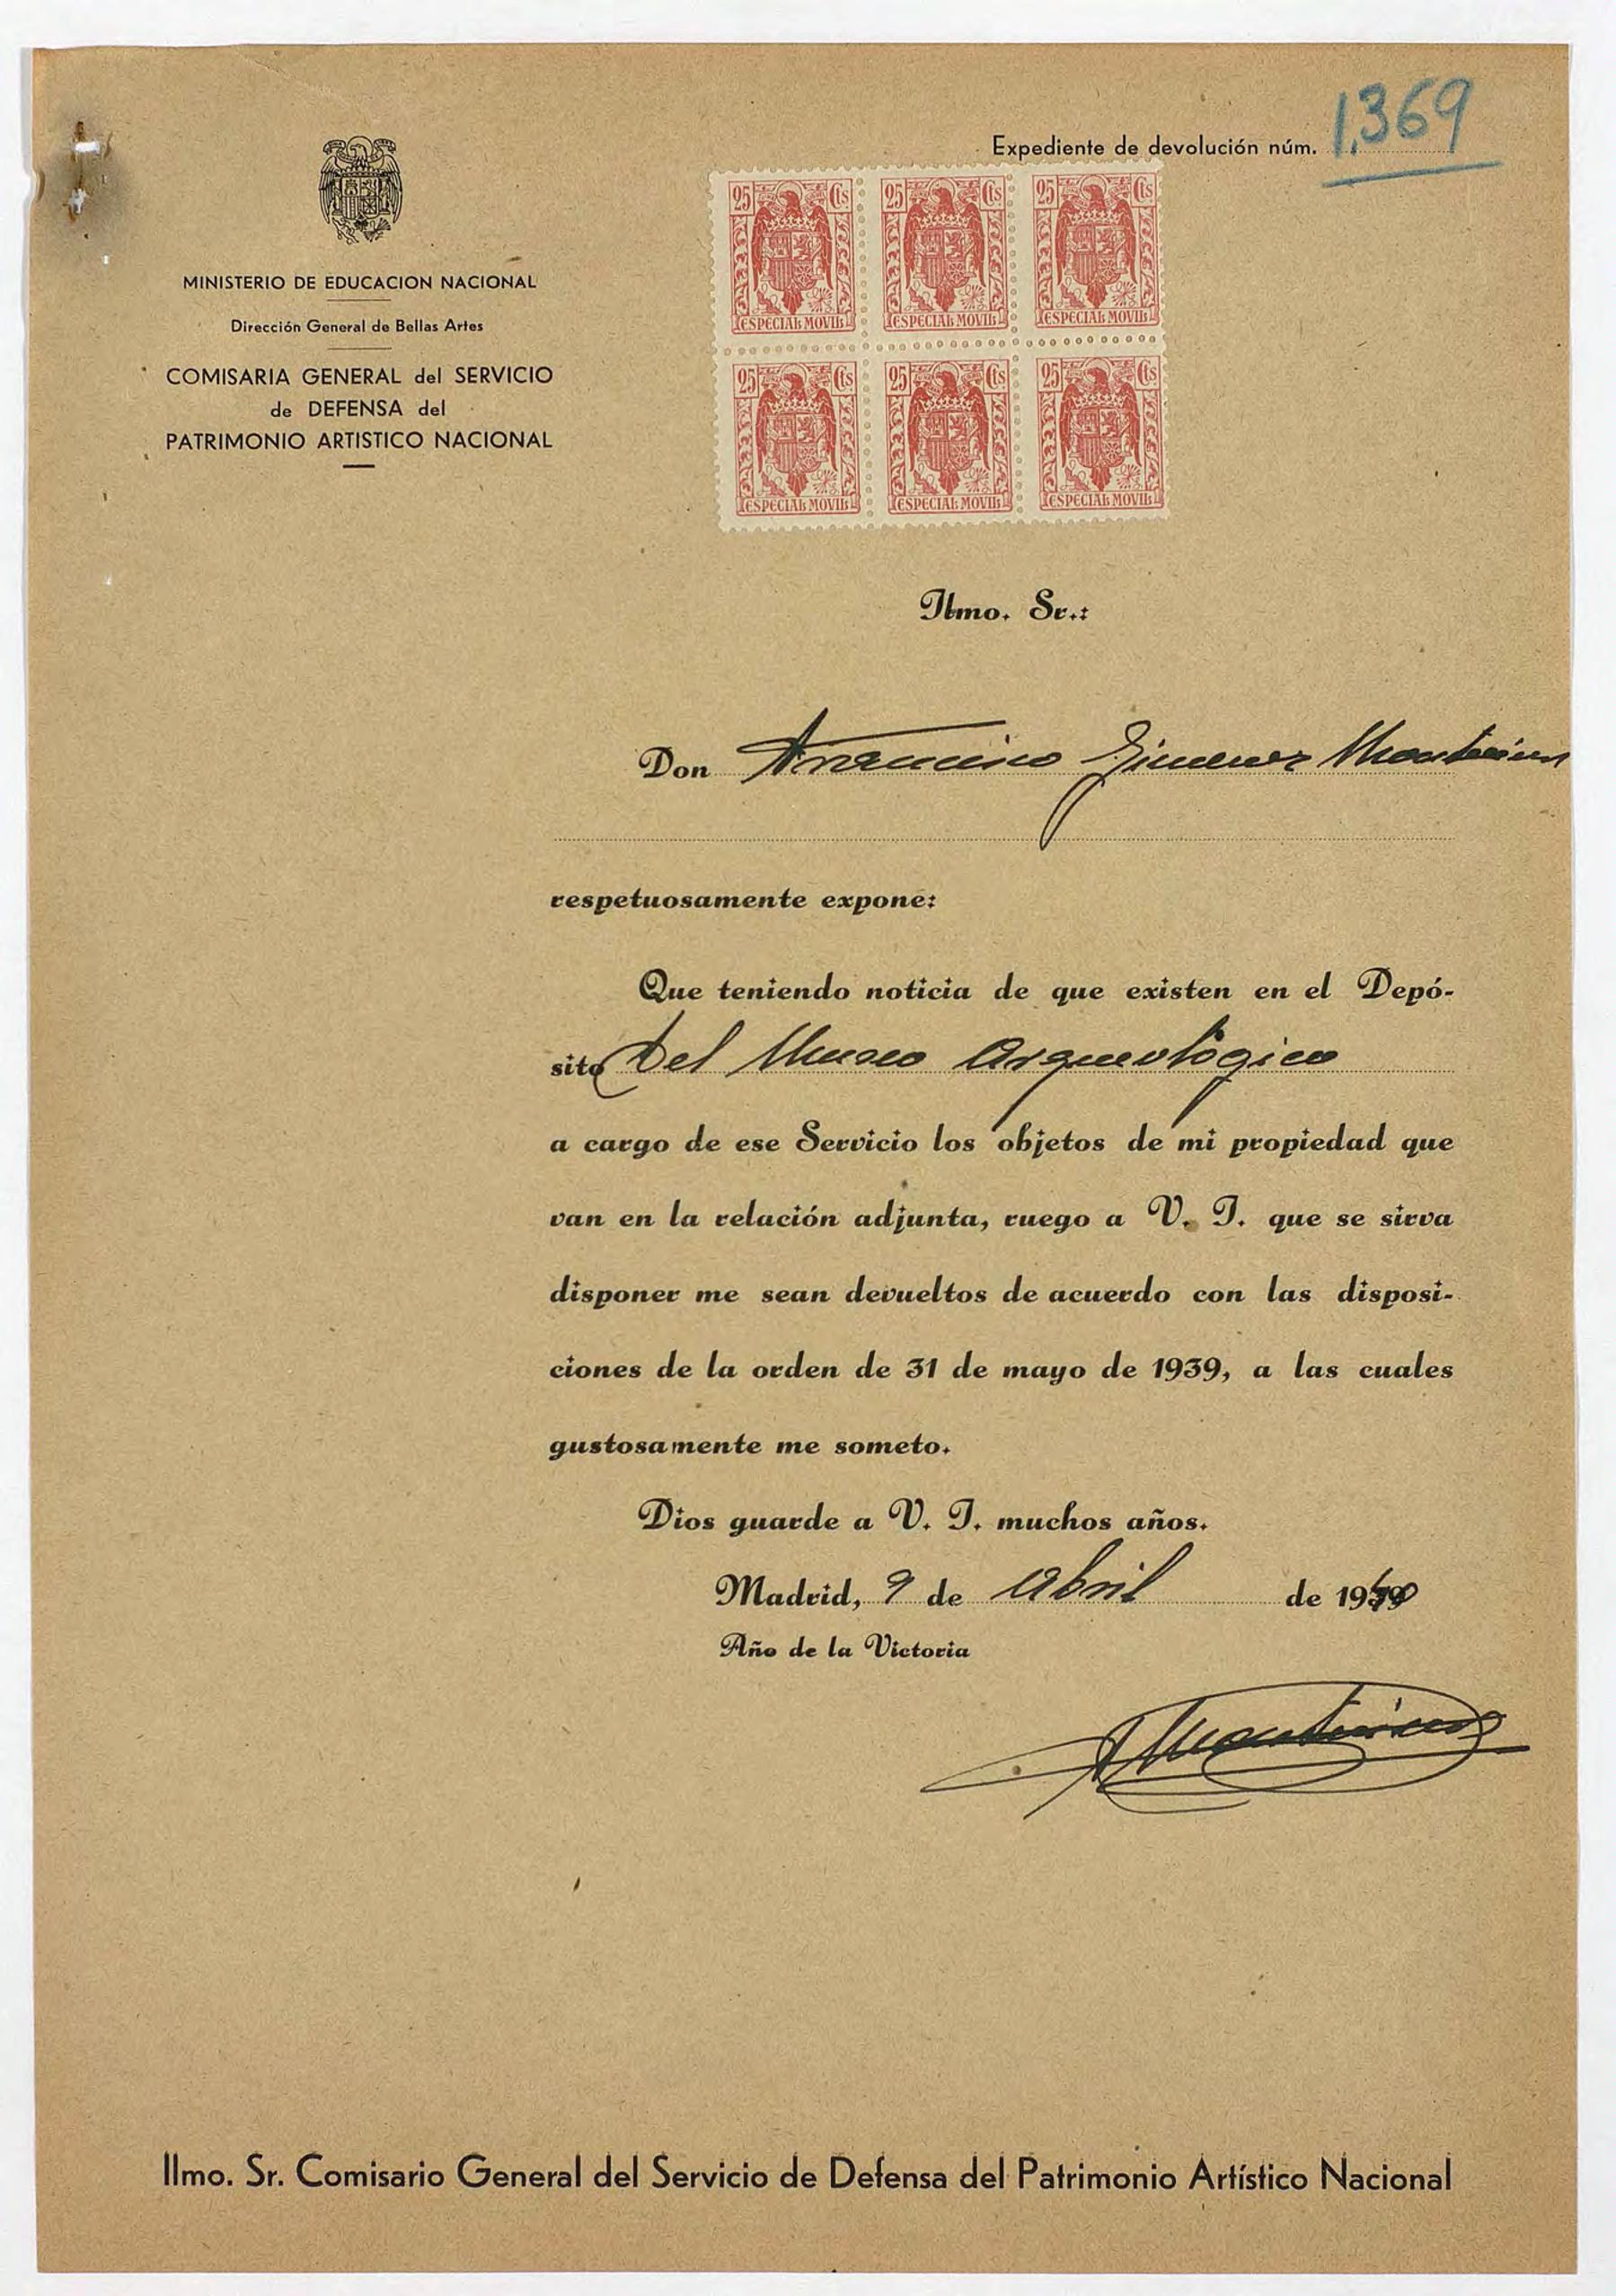 Expediente de devolución núm. 1,369
MINISTERIO DE EDUCACION NACIONAL
Dirección General de Bellas Artes
COMISARIA GENERAL del SERVICIO
de DEFENSA del
PATRIMONIO ARTISTICO NACIONAL
25 Cts 25 Cts 25 Cts
ESPECIAL MOVIL ESPECIAL MOVIL ESPECIAL MOVIL
25 Cts 25 Cts 25 Cts
ESPECIAL MOVIL ESPECIAL MOVIL ESPECIAL MOVIL
Ilmo. Sr.:
Don Jimenez
respetuosamente expone:
Que teniendo noticia de que existen en el Depó-
sito del Museo Arqueológico
a cargo de ese Servicio los objetos de mi propiedad que
van en la relación adjunta, ruego a V. I. que se sirva
disponer me sean devueltos de acuerdo con las disposi-
ciones de la orden de 31 de mayo de 1939, a las cuales
gustosamente me someto.
Dios guarde a V. I. muchos años.
Madrid, 9 de abril de 1940
Año de la Victoria
Ilmo. Sr. Comisario General del Servicio de Defensa del Patrimonio Artístico Nacional